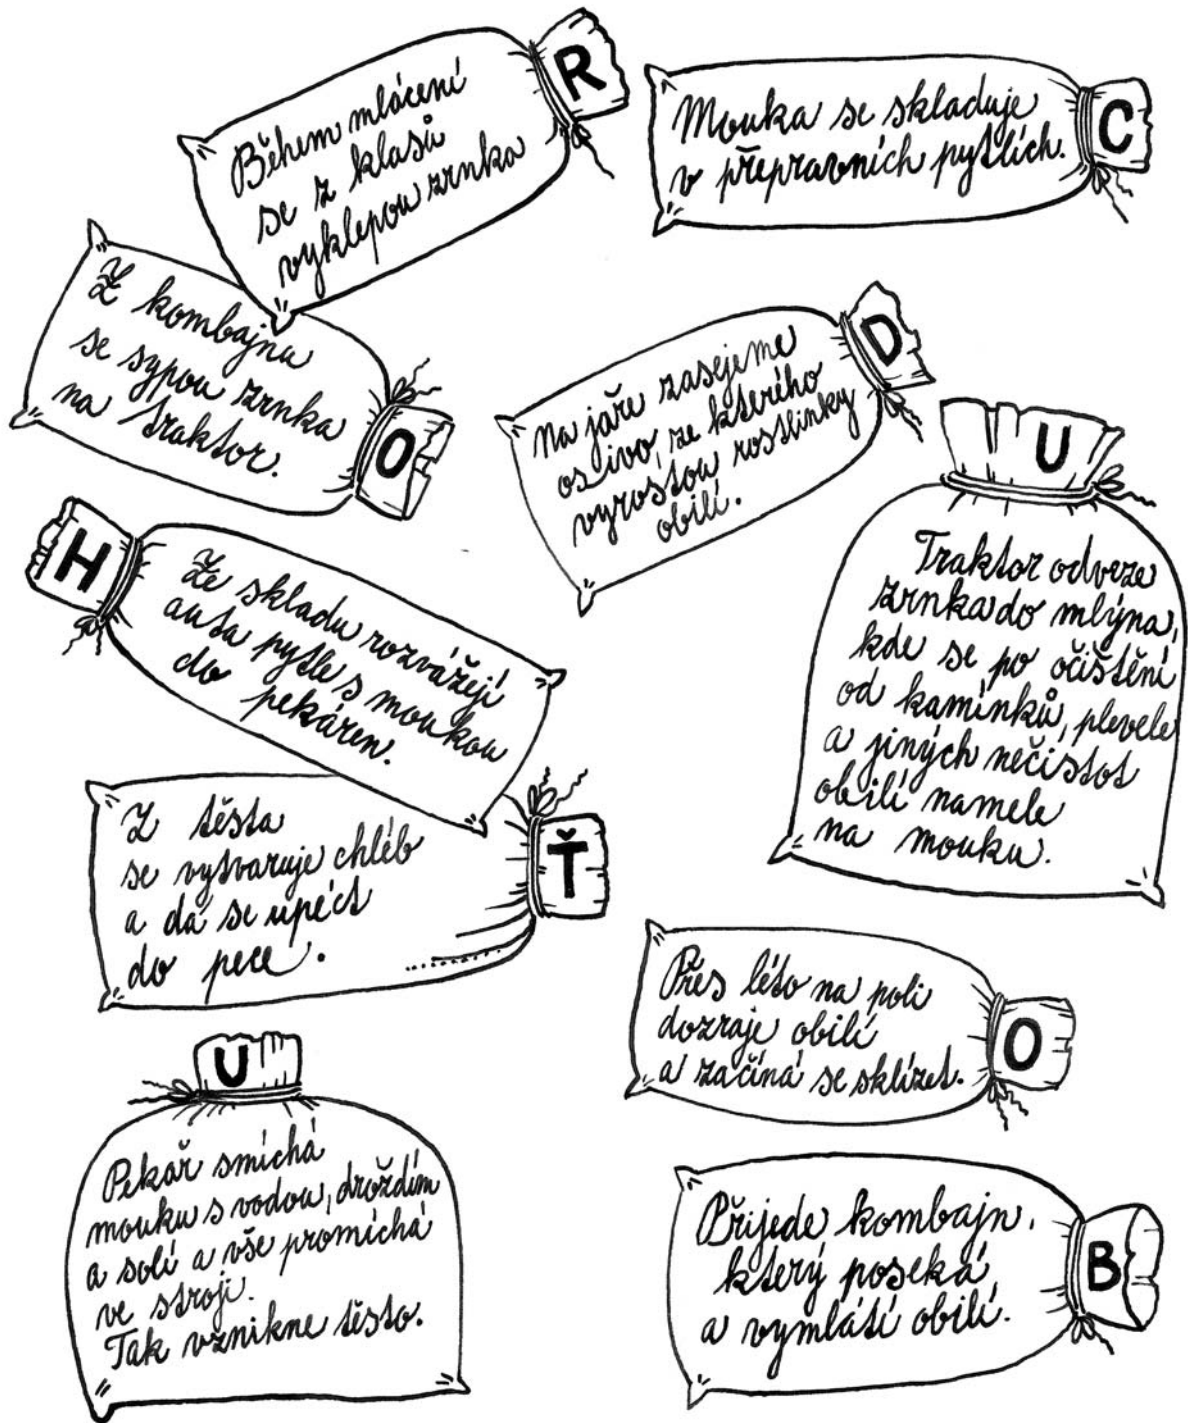 R
Během mlácení
se z klasů
vyklepou zrnka
Mouka se skladuje
v přepravních pytlích.
C
Z kombajnu
se sypou zrnka
na traktor.
O
Na jaře zasejeme
osivo, ze kterého
vyrostou rostlinky
obilí.
D
U
Traktor odveze
zrnka do mlýna,
kde se po očištění
od kamínků, plevele
a jiných nečistot
obilí namele
na mouku.
H
Ze skladu rozvážejí
auta pytle s moukou
do pekáren.
Z těsta
se vytvaruje chléb
a dá se upéct
do pece.
Ť
Přes léto na poli
dozraje obilí
a začíná se sklízet.
O
U
Pekař smíchá
mouku s vodou, droždím
a solí a vše promíchá
ve stroji.
Tak vznikne těsto.
Přijede kombajn,
který poseká
a vymlátí obilí.
B